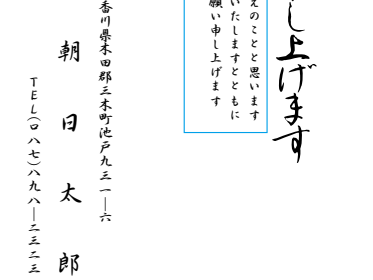 し上げます
えのことと思います
いたしますとともに
願い申し上げます
香川県木田郡三木町池戸九三一―六
朝日太郎
TEL(〇八七)八九八―二三二三